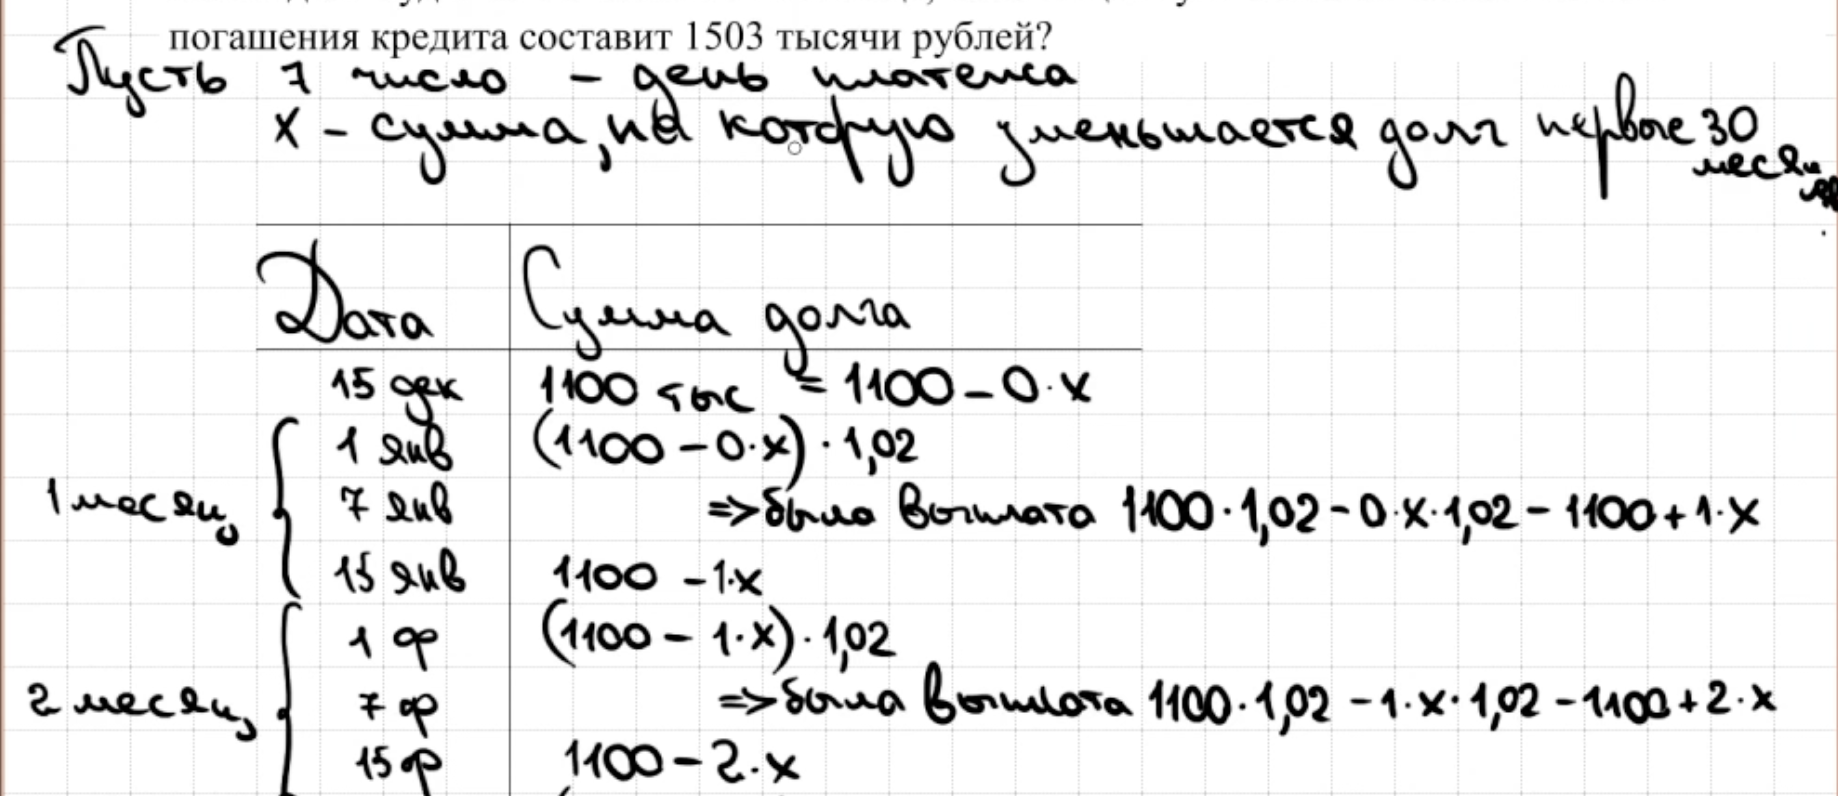 погашения кредита составит 1503 тысячи рублей?
Пусть 7 число – день платежа
x – сумма, на которую уменьшается долг первые 30 месяцев
Дата Сумма долга
15 дек 1100 тыс = 1100 – 0·x
1 янв (1100 – 0·x)·1,02
1 месяц 7 янв => была выплата 1100·1,02 – 0·x·1,02 – 1100 + 1·x
15 янв 1100 – 1·x
1 ф (1100 – 1·x)·1,02
2 месяц 7 ф => была выплата 1100·1,02 – 1·x·1,02 – 1100 + 2·x
15 ф 1100 – 2·x